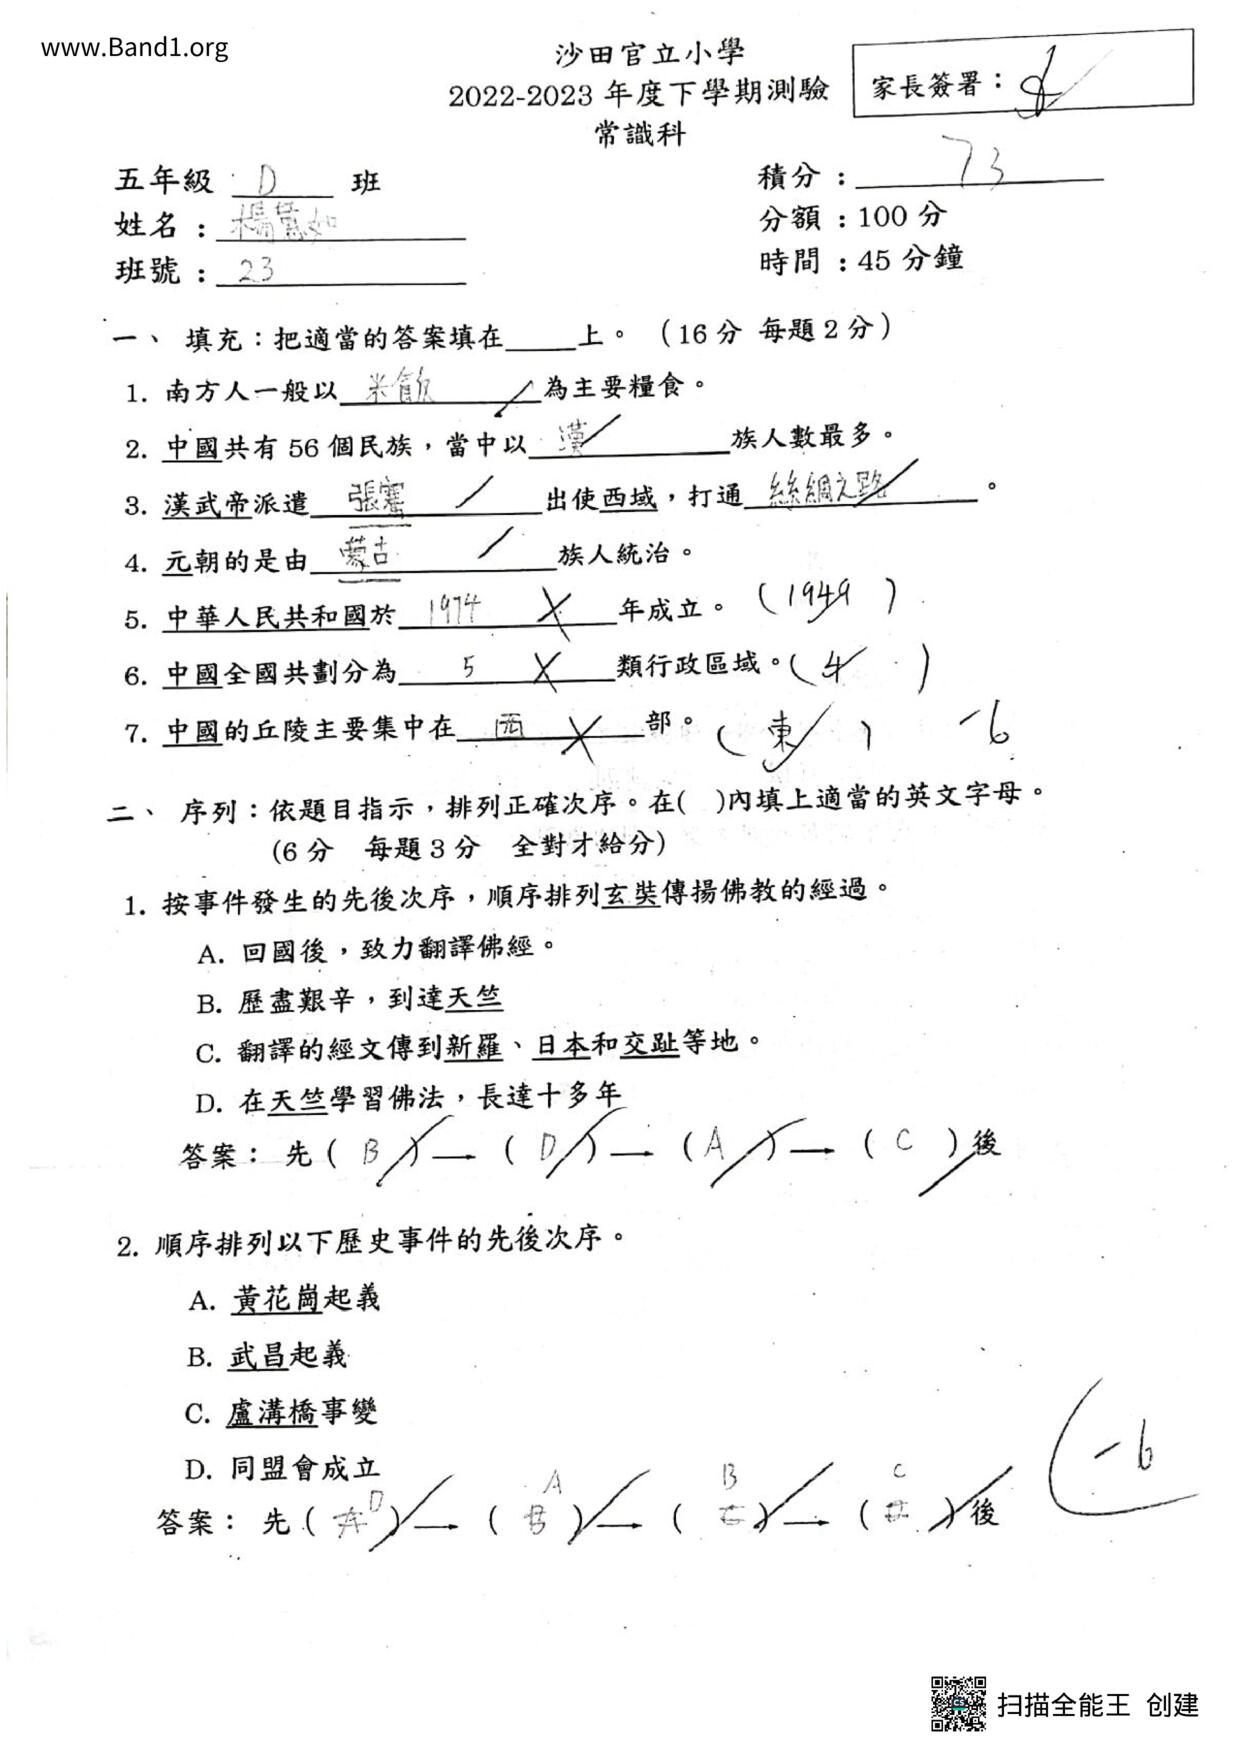 www.Band1.org
沙田官立小學
2022-2023 年度下學期測驗
常識科
家長簽署：
五年級 D 班
積分：73
姓名：楊慧如
分額：100 分
班號：23
時間：45 分鐘
一、 填充：把適當的答案填在____上。（16 分 每題 2 分）
1. 南方人一般以 米飯 為主要糧食。
2. 中國共有 56 個民族，當中以 漢 族人數最多。
3. 漢武帝派遣 張騫 出使西域，打通 絲綢之路 。
4. 元朝的是由 蒙古 族人統治。
5. 中華人民共和國於 1974 年成立。（1949）
6. 中國全國共劃分為 5 類行政區域。（4）
7. 中國的丘陵主要集中在 西 部。（東） -6
二、 序列：依題目指示，排列正確次序。在( )內填上適當的英文字母。
(6 分 每題 3 分 全對才給分)
1. 按事件發生的先後次序，順序排列玄奘傳揚佛教的經過。
A. 回國後，致力翻譯佛經。
B. 歷盡艱辛，到達天竺
C. 翻譯的經文傳到新羅、日本和交趾等地。
D. 在天竺學習佛法，長達十多年
答案： 先（ B ）→（ D ）→（ A ）→（ C ）後
2. 順序排列以下歷史事件的先後次序。
A. 黃花崗起義
B. 武昌起義
C. 盧溝橋事變
D. 同盟會成立
答案： 先（ D ）→（ A ）→（ B ）→（ C ）後
-6
扫描全能王 创建